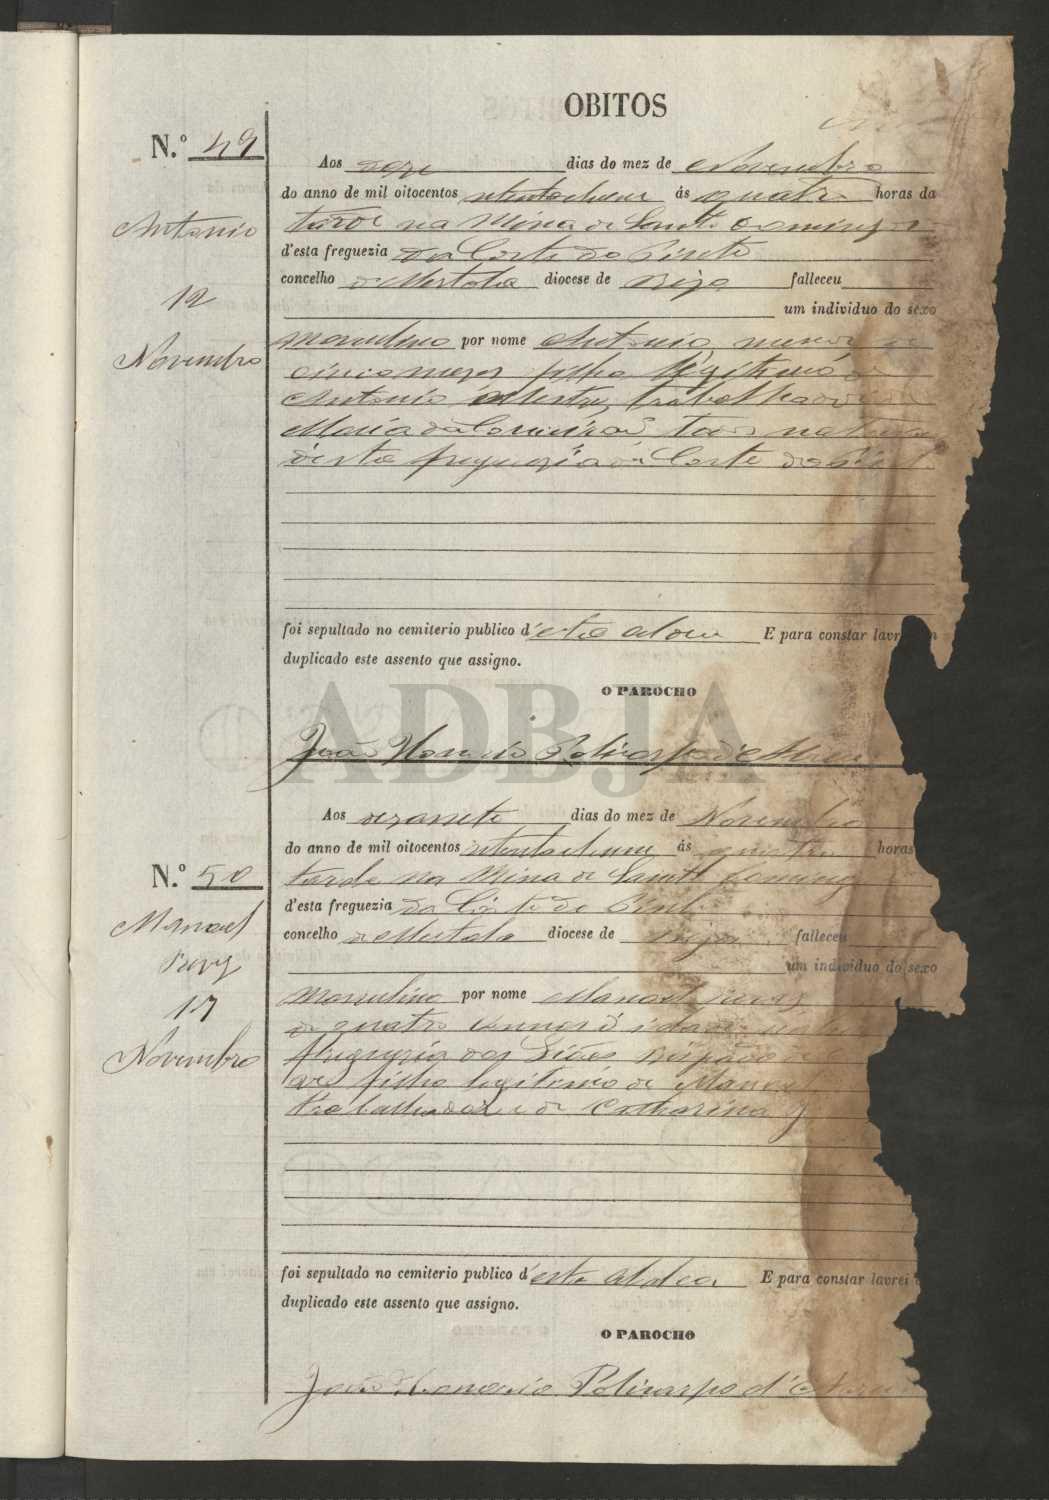 OBITOS
N.º 49
Antonio
12
Novembro
Aos doze dias do mez de Novembro
do anno de mil oitocentos setenta e hum ás quatro horas da
tarde na Mina de Santo Domingos
d'esta freguezia da Corte do Pinto
concelho de Mertola diocese de Beja falleceu
um individuo do sexo
masculino por nome Antonio menor de
cinco mezes filho legitimo de
Antonio trabalhador
Maria da Conceição naturaes
d'esta freguezia da Corte do Pinto
foi sepultado no cemiterio publico d'esta aldeia E para constar lavrei em
duplicado este assento que assigno.
O PAROCHO
João Honorio Policarpo d'
ADBJA
N.º 50
Manoel
17
Novembro
Aos dezasete dias do mez de Novembro
do anno de mil oitocentos setenta e hum ás quatro horas
tarde na Mina de Santo Domingos
d'esta freguezia da Corte do Pinto
concelho de Mertola diocese de Beja falleceu
um individuo do sexo
masculino por nome Manoel
de quatro annos d'idade
freguezia dos
filho legitimo de Manoel
trabalhador e de Catharina
foi sepultado no cemiterio publico d'esta aldea E para constar lavrei
duplicado este assento que assigno.
O PAROCHO
João Honorio Policarpo d'